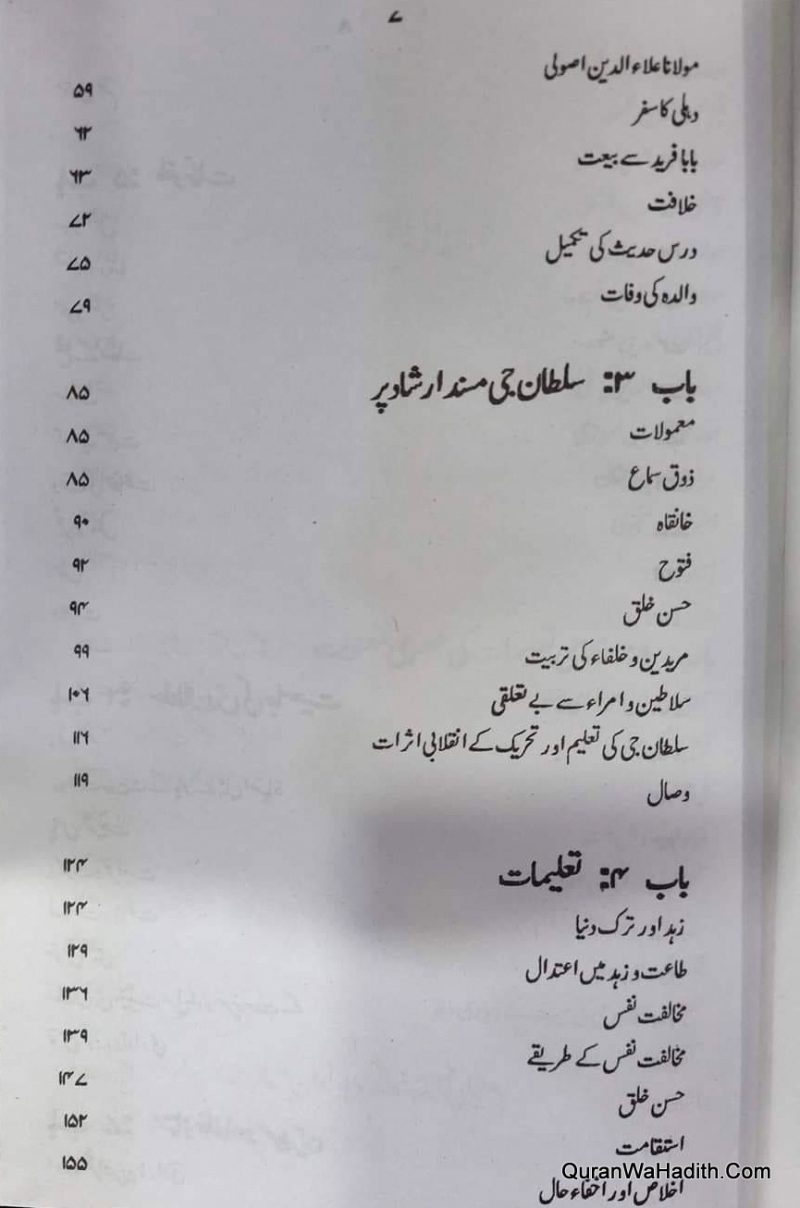 ۷
مولانا علاء الدین اصولی ۵۹
دہلی کا سفر ۶۲
بابا فرید سے بیعت ۶۳
خلافت ۷۲
درس حدیث کی تکمیل ۷۵
والدہ کی وفات ۷۹
باب ۳: سلطان جی مسند ارشاد پر ۸۵
معمولات ۸۵
ذوق سماع ۸۵
خانقاہ ۹۰
فتوح ۹۲
حسن خلق ۹۴
مریدین و خلفاء کی تربیت ۹۹
سلاطین و امراء سے بے تعلقی ۱۰۶
سلطان جی کی تعلیم اور تحریک کے انقلابی اثرات ۱۱۶
وصال ۱۱۹
باب ۴: تعلیمات ۱۲۴
زہد اور ترک دنیا ۱۲۴
طاعت و زہد میں اعتدال ۱۲۹
مخالفت نفس ۱۳۶
مخالفت نفس کے طریقے ۱۳۹
حسن خلق ۱۴۷
استقامت ۱۵۲
اخلاص اور اخفاء حال ۱۵۵
QuranWaHadith.Com